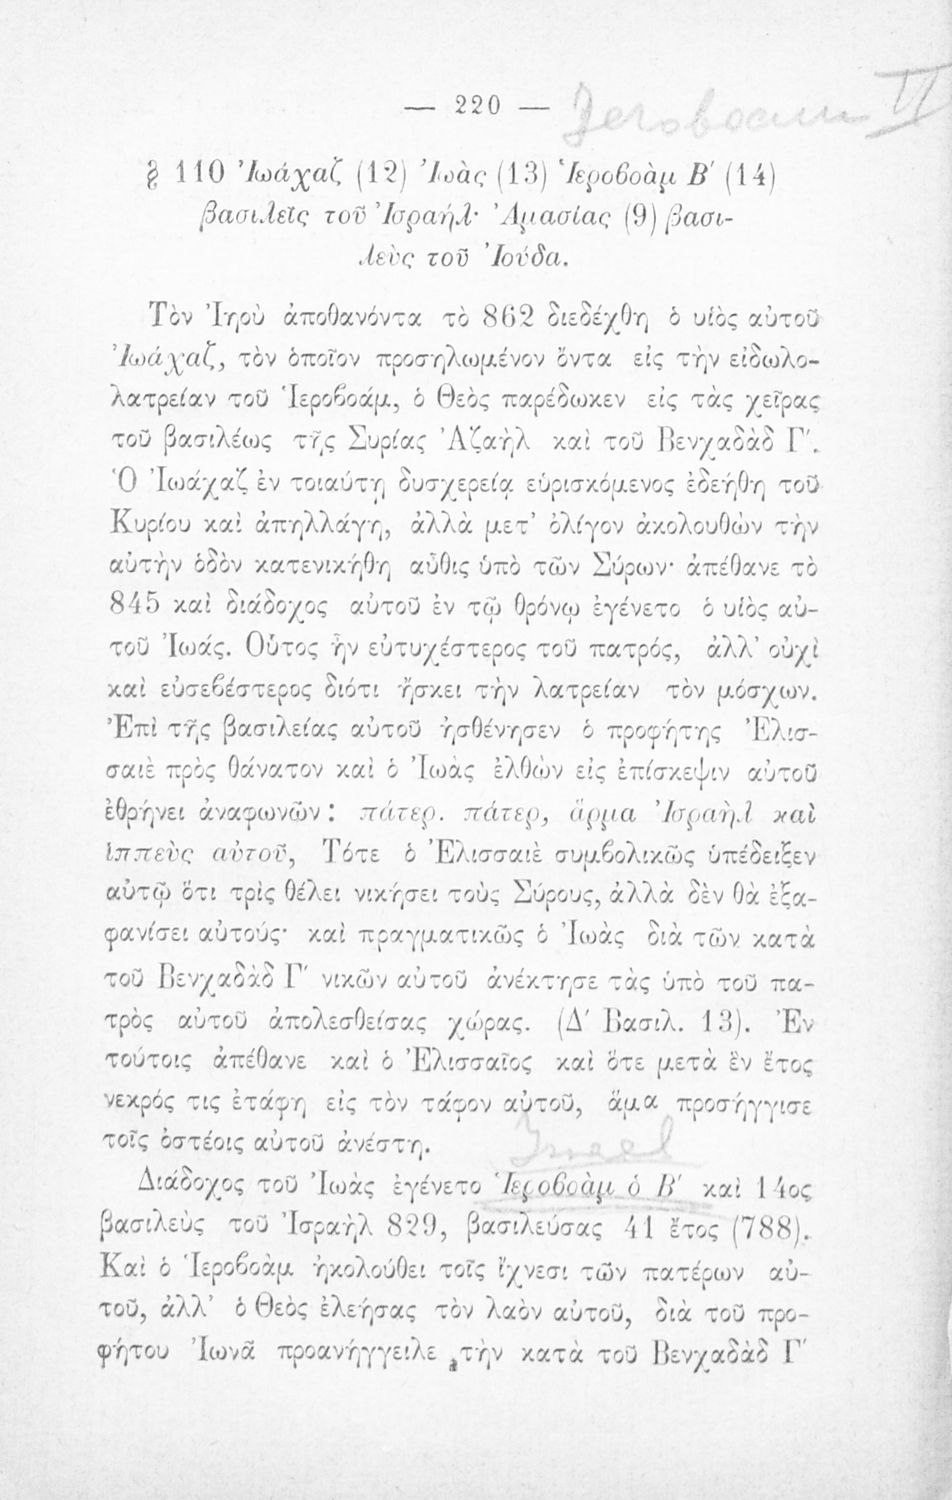 — 220 — Jeroboam II
§ 110 Ἰωάχαζ (12) Ἰωὰς (13) Ἱεροβοὰμ Β΄ (14)
βασιλεῖς τοῦ Ἰσραήλ· Ἀμασίας (9) βασι-
λεὺς τοῦ Ἰούδα.
Τὸν Ἰηοὺ ἀποθανόντα τὸ 862 διεδέχθη ὁ υἱὸς αὐτοῦ
Ἰωάχαζ, τὸν ὁποῖον προσηλωμένον ὄντα εἰς τὴν εἰδωλο-
λατρείαν τοῦ Ἱεροβοάμ, ὁ Θεὸς παρέδωκεν εἰς τὰς χεῖρας
τοῦ βασιλέως τῆς Συρίας Ἀζαὴλ καὶ τοῦ Βενχαδὰδ Γ΄.
Ὁ Ἰωάχαζ ἐν τοιαύτῃ δυσχερείᾳ εὑρισκόμενος ἐδεήθη τοῦ
Κυρίου καὶ ἀπηλλάγη, ἀλλὰ μετ' ὀλίγον ἀκολουθῶν τὴν
αὐτὴν ὁδὸν κατενικήθη αὖθις ὑπὸ τῶν Σύρων· ἀπέθανε τὸ
845 καὶ διάδοχος αὐτοῦ ἐν τῷ θρόνῳ ἐγένετο ὁ υἱὸς αὐ-
τοῦ Ἰωάς. Οὗτος ἦν εὐτυχέστερος τοῦ πατρός, ἀλλ' οὐχὶ
καὶ εὐσεβέστερος διότι ἤσκει τὴν λατρείαν τὸν μόσχων.
Ἐπὶ τῆς βασιλείας αὐτοῦ ἠσθένησεν ὁ προφήτης Ἐλισ-
σαιὲ πρὸς θάνατον καὶ ὁ Ἰωὰς ἐλθὼν εἰς ἐπίσκεψιν αὐτοῦ
ἐθρήνει ἀναφωνῶν : πάτερ. πάτερ, ἅρμα Ἰσραὴλ καὶ
ἱππεὺς αὐτοῦ, Τότε ὁ Ἐλισσαιὲ συμβολικῶς ὑπέδειξεν
αὐτῷ ὅτι τρὶς θέλει νικήσει τοὺς Σύρους, ἀλλὰ δὲν θὰ ἐξα-
φανίσει αὐτούς· καὶ πραγματικῶς ὁ Ἰωὰς διὰ τῶν κατὰ
τοῦ Βενχαδὰδ Γ΄ νικῶν αὐτοῦ ἀνέκτησε τὰς ὑπὸ τοῦ πα-
τρὸς αὐτοῦ ἀπολεσθείσας χώρας. (Δ΄ Βασιλ. 13). Ἐν
τούτοις ἀπέθανε καὶ ὁ Ἐλισσαῖος καὶ ὅτε μετὰ ἓν ἔτος
νεκρός τις ἐτάφη εἰς τὸν τάφον αὐτοῦ, ἅμα προσήγγισε
τοῖς ὀστέοις αὐτοῦ ἀνέστη.
Israel
Διάδοχος τοῦ Ἰωὰς ἐγένετο Ἱεροβοὰμ ὁ Β΄ καὶ 14ος
βασιλεὺς τοῦ Ἰσραὴλ 829, βασιλεύσας 41 ἔτος (788).
Καὶ ὁ Ἱεροβοὰμ ἠκολούθει τοῖς ἴχνεσι τῶν πατέρων αὐ-
τοῦ, ἀλλ' ὁ Θεὸς ἐλεήσας τὸν λαὸν αὐτοῦ, διὰ τοῦ προ-
φήτου Ἰωνᾶ προανήγγειλε τὴν κατὰ τοῦ Βενχαδὰδ Γ΄